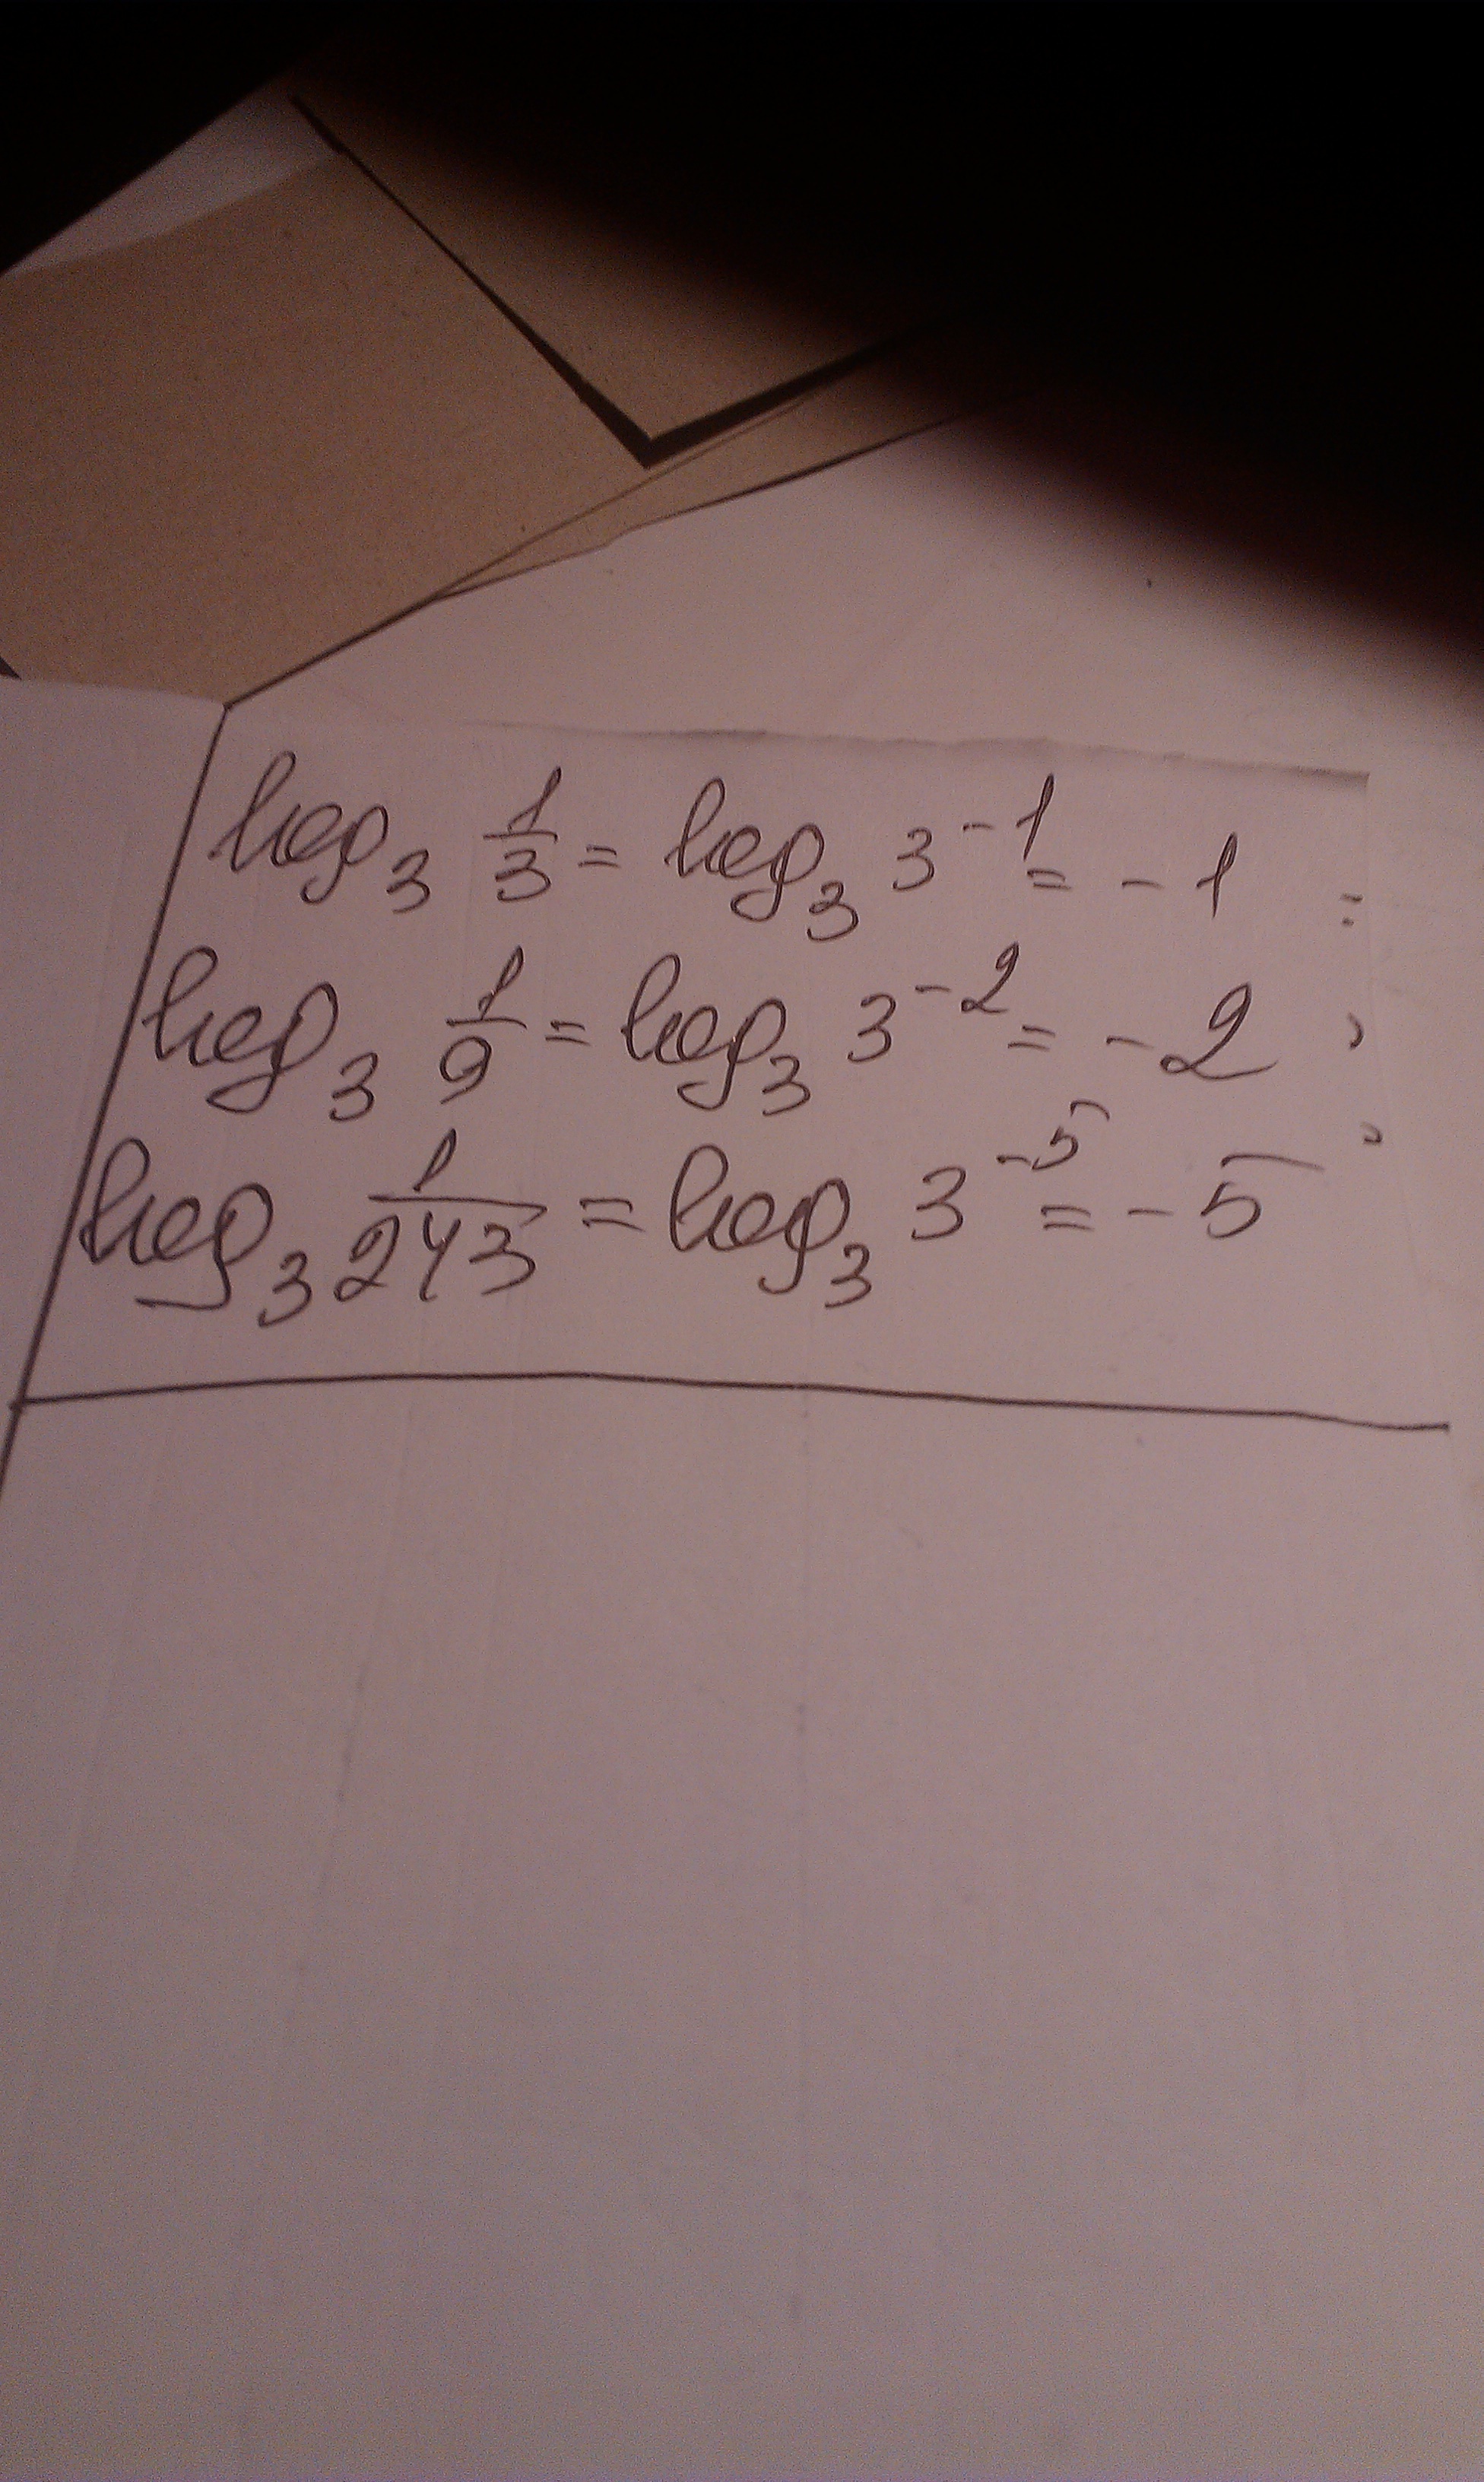 log₃ 1/3 = log₃ 3⁻¹ = - 1
log₃ 1/9 = log₃ 3⁻² = - 2
log₃ 1/243 = log₃ 3⁻⁵ = - 5